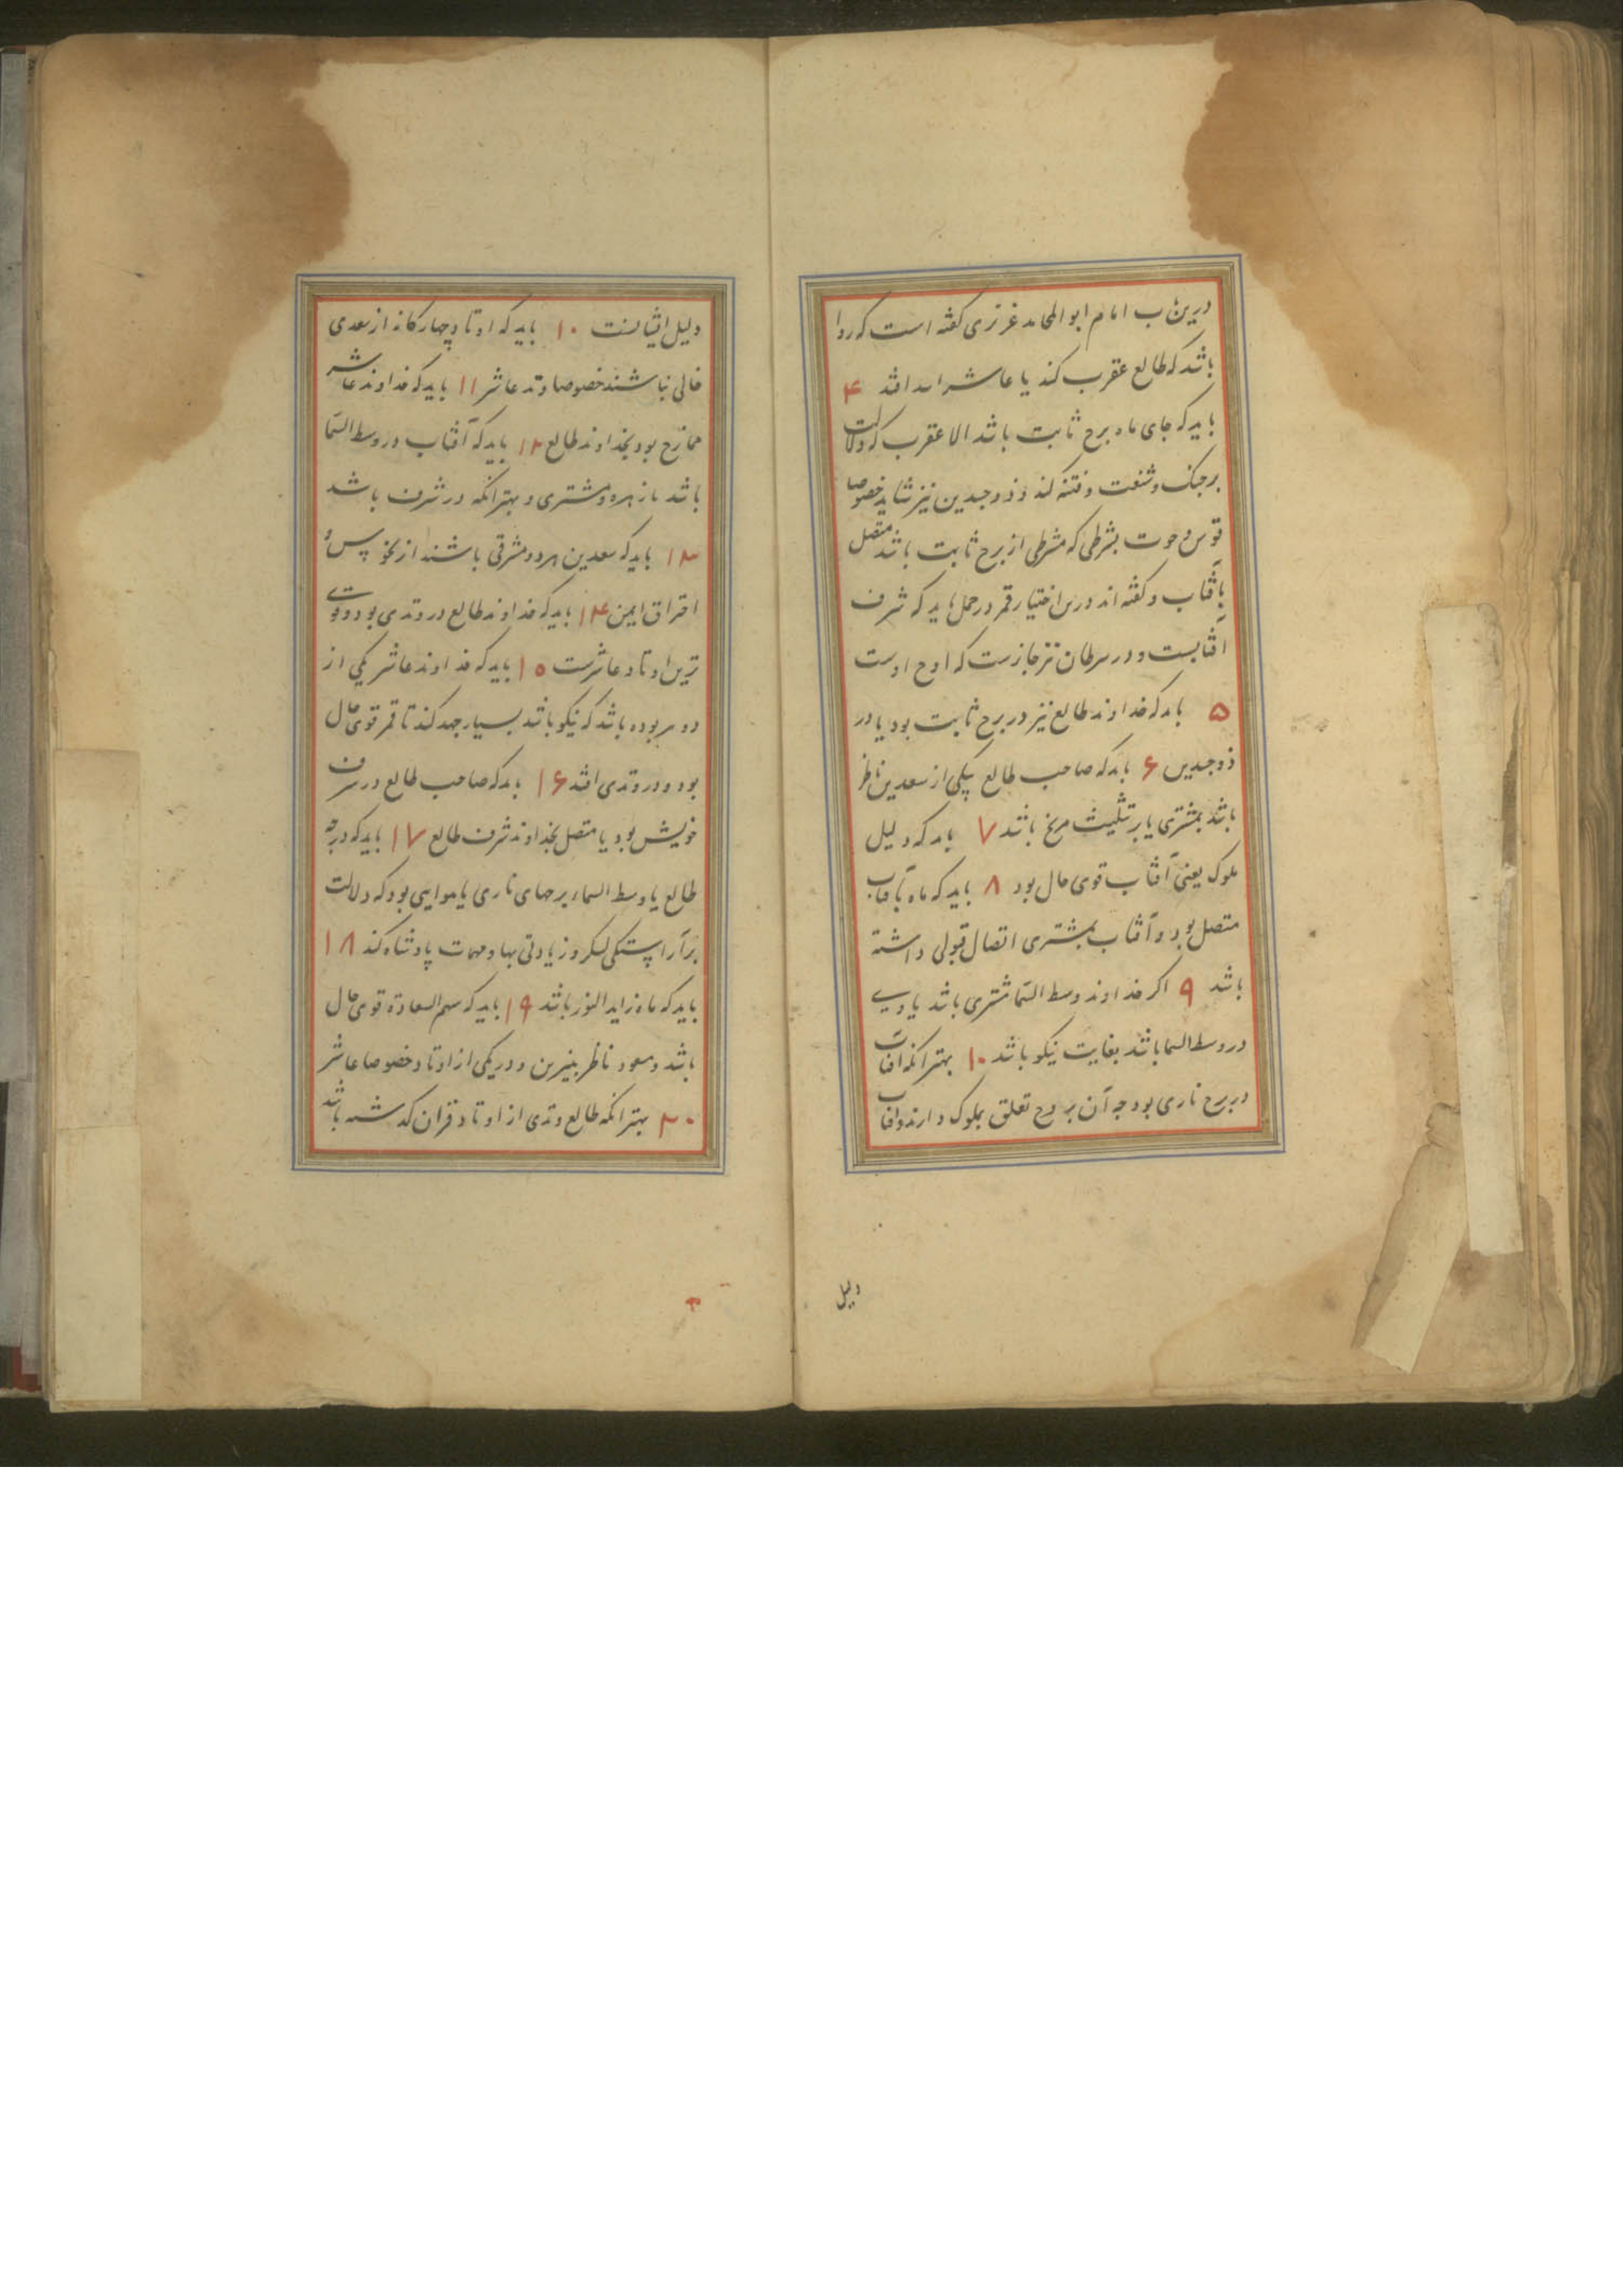 درین باب امام ابو المحامد غزنوی کفته است که روا
باشد که طالع عقرب کند یا عاشر اسد افتد ۴
باید که جای ماه برج ثابت باشد الا عقرب که دلالت
بر جنک و شغب و فتنه کند و ذوجسدین نیز شاید خصوصا
قوس و حوت بشرطی که مشرطی از برج ثابت باشد متصل
بآفتاب و کفته اند درین اختیار قمر در حمل باید که شرف
آفتابست و در سرطان نیز جایزست که اوج اوست
۵ باید که خداوند طالع نیز در برج ثابت بود یا در
ذوجسدین ۶ باید که صاحب طالع بیکی از سعدین ناظر
باشد بمشتری یا بر تثلیث مریخ باشد ۷ باید که دلیل
ملوک یعنی آفتاب قوی حال بود ۸ باید که ماه بآفتاب
متصل بود و آفتاب بمشتری اتصال قبولی داشته
باشد ۹ اکر خداوند وسط السما مشتری باشد یا وی
در وسط السما باشد بغایت نیکو باشد ۱۰ بهتر انکه افتاب
در برج ناری بود چه آن بروج تعلق بملوک دارند و افتاب
دلیل
دلیل ایشانست ۱۰ باید که اوتاد چهارکانه از سعدی
خالی نباشند خصوصا وتد عاشر ۱۱ باید که خداوند عاشر
ممازج بود بخداوند طالع ۱۲ باید که آفتاب در وسط السما
باشد با زهره و مشتری و بهتر انکه در شرف باشد
۱۳ باید که سعدین هر دو مشرقی باشند از نحوس و
احتراق ایمن ۱۴ باید که خداوند طالع در وتدی بود و قوی
ترین اوتاد عاشرست ۱۵ باید که خداوند عاشر یکی از
دو بوده باشد که نیکو باشد بسیار جهد کند تا قمر قوی حال
بود و در وتدی افتد ۱۶ باید که صاحب طالع در شرف
خویش بود یا متصل بخداوند شرف طالع ۱۷ باید که درجه
طالع یا وسط السماء برجهای ناری یا هوایی بود که دلالت
بر آراستکی لشکر و زیادتی بها و مهمات پادشاه کند ۱۸
باید که ماه زاید النور باشد ۱۹ باید که سهم السعادة قوی حال
باشد و مسعود ناظر بنیرین و در یکی از اوتاد خصوصا عاشر
۲۰ بهتر انکه طالع وتدی از اوتاد قران کذشته باشد